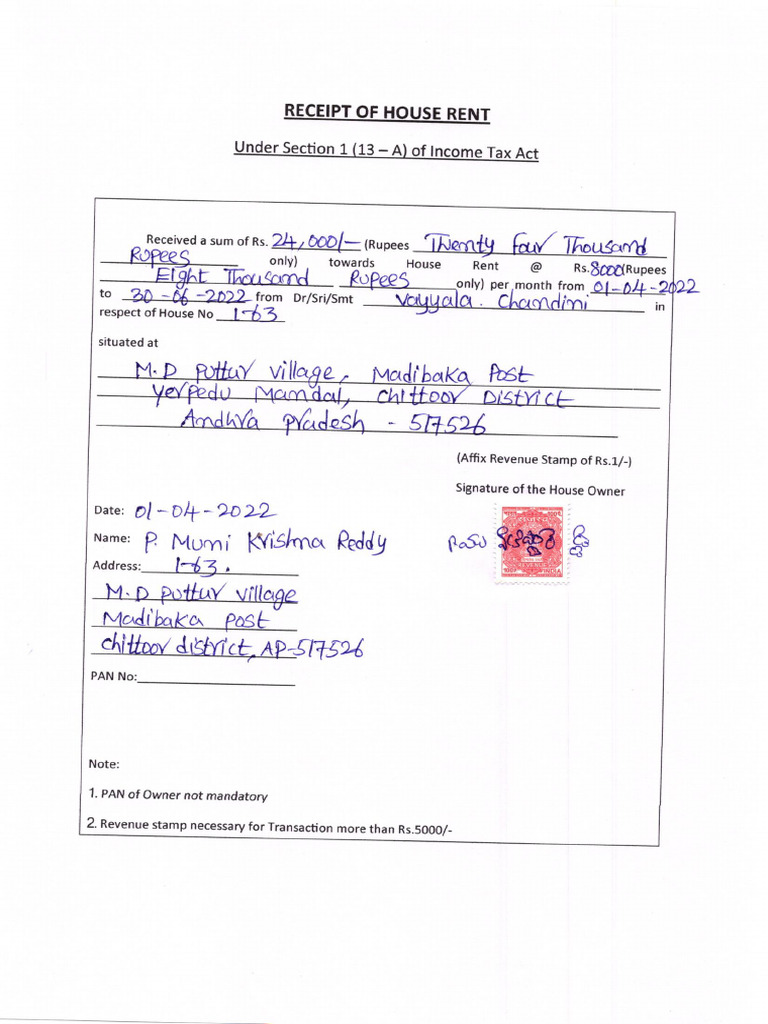 RECEIPT OF HOUSE RENT
Under Section 1 (13 – A) of Income Tax Act
Received a sum of Rs. 24,000/- (Rupees Twenty Four Thousand
Rupees only) towards House Rent @ Rs.8000(Rupees
Eight Thousand Rupees only) per month from 01-04-2022
to 30-06-2022 from Dr/Sri/Smt Vayyala. Chandini in
respect of House No 1-63
situated at
M.D Puttur Village, Madibaka Post
Yerpedu Mandal, Chittoor District
Andhra Pradesh - 517526
(Affix Revenue Stamp of Rs.1/-)
Signature of the House Owner
Date: 01-04-2022
Name: P. Muni Krishna Reddy
Address: 1-63.
M.D Puttur Village
Madibaka Post
Chittoor district, AP-517526
PAN No:
Note:
1. PAN of Owner not mandatory
2. Revenue stamp necessary for Transaction more than Rs.5000/-